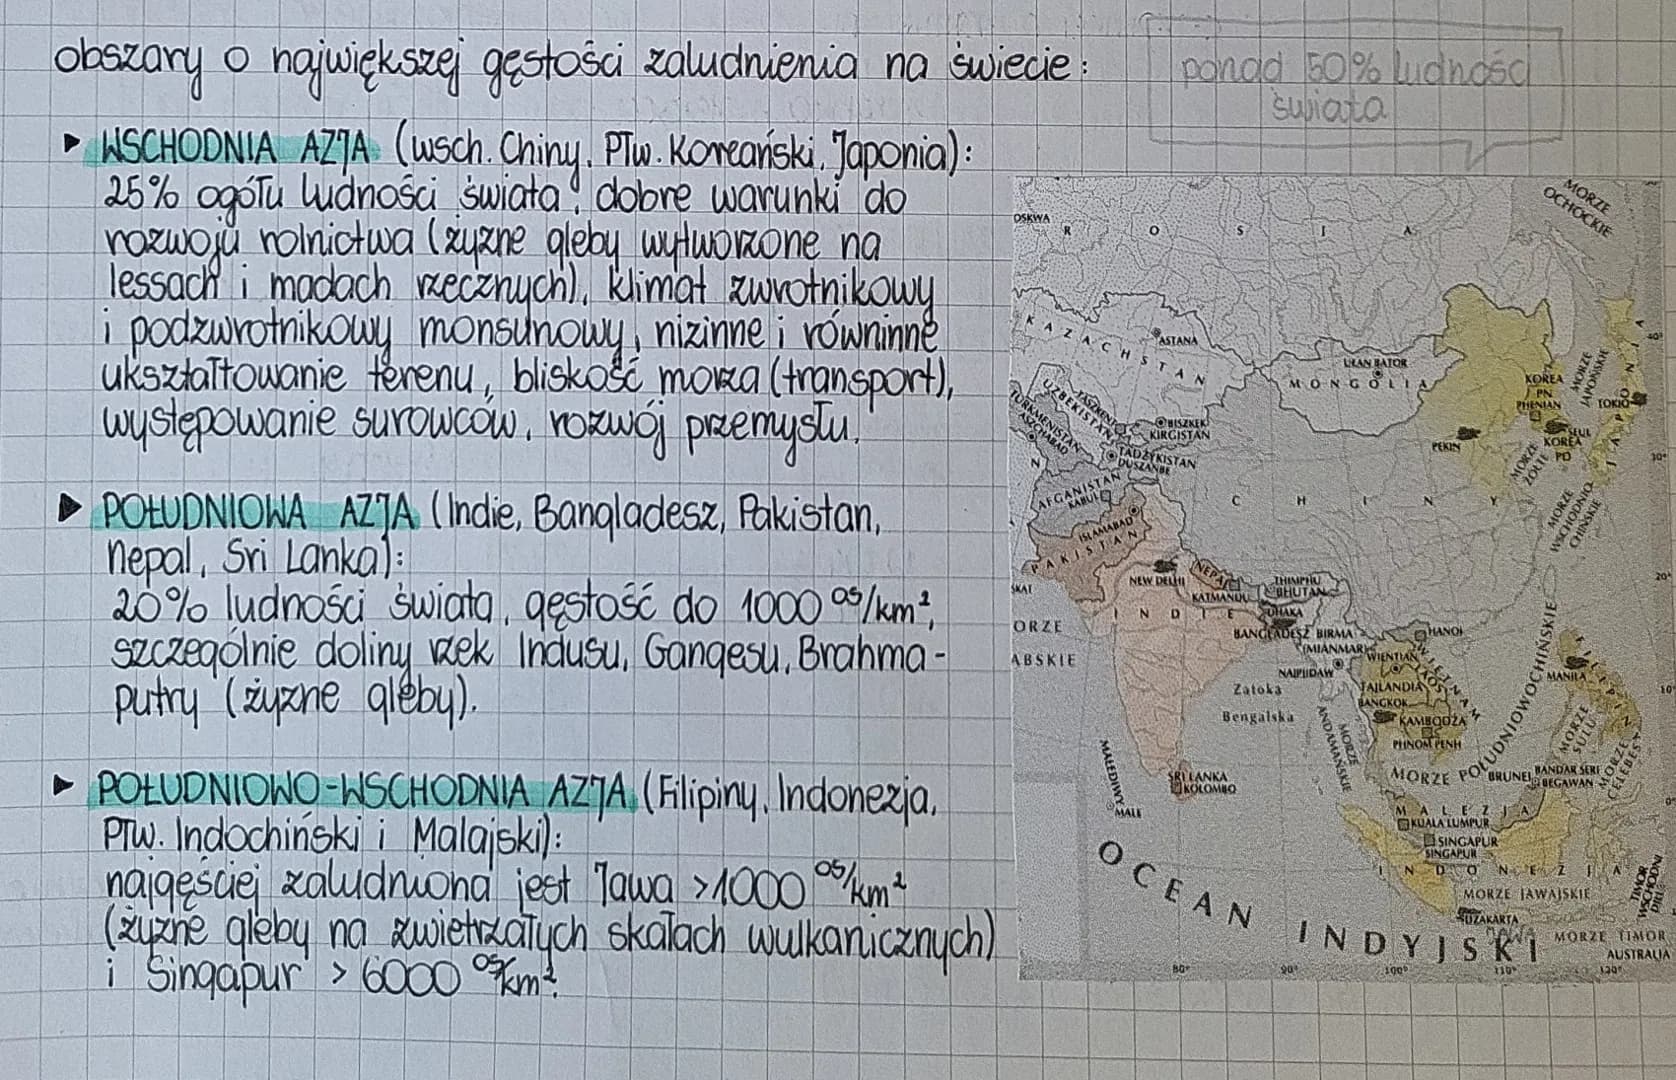 obszary o największej gęstości zaludnienia na świecie:
ponad 50% ludności
świata
▸ WSCHODNIA AZJA (wsch. Chiny, Płw. Koreański, Japonia):
25% ogółu ludności świata, dobre warunki do
rozwoju rolnictwa (żyzne gleby wytworzone na
lessach i madach rzecznych), klimat zwrotnikowy
i podzwrotnikowy monsunowy, nizinne i równinne
ukształtowanie terenu, bliskość morza (transport),
występowanie surowców, rozwój przemysłu.
▸ POŁUDNIOWA AZJA (Indie, Bangladesz, Pakistan,
Nepal, Sri Lanka):
20% ludności świata, gęstość do 1000 os/km²,
szczególnie doliny rzek Indusu, Gangesu, Brahma-
putry (żyzne gleby).
▸ POŁUDNIOWO-WSCHODNIA AZJA (Filipiny, Indonezja,
Płw. Indochiński i Malajski):
najgęściej zaludniona jest Jawa >1000 os/km²
(żyzne gleby na zwietrzałych skałach wulkanicznych)
i Singapur > 6000 os/km².
MORZE
OCHOCKIE
OSKWA
R O S J A
KAZACHSTAN
ASTANA
UŁAN BATOR
MONGOLIA
KOREA
PN
PHENIAN
MORZE
JAPOŃSKIE
JAPONIA
TOKIO
UZBEKISTAN
TASZKENT
TURKMENISTAN
ASZCHABAD
BISZKEK
KIRGISTAN
TADŻYKISTAN
DUSZANBE
PEKIN
SEUL
KOREA
PD
MORZE
ŻÓŁTE
AFGANISTAN
KABUL
C H I N Y
MORZE
WSCHODNIO-
CHIŃSKIE
ISLAMABAD
PAKISTAN
NEW DELHI
NEPAL
KATMANDU
THIMPHU
BHUTAN
SKAT
INDIE
DHAKA
BANGLADESZ
BIRMA
(MIANMAR)
HANOI
ORZE
ABSKIE
WIENTIAN
LAOS
WIETNAM
NAJPIDAW
Zatoka
Bengalska
TAJLANDIA
BANGKOK
KAMBODŻA
PHNOM PENH
MORZE
ANDAMAŃSKIE
MORZE POŁUDNIOWOCHIŃSKIE
MANILA
FILIPINY
MORZE
SULU
MORZE
CELEBES
MALEDIWY
MALE
SRI LANKA
KOLOMBO
BRUNEI
BANDAR SERI
BEGAWAN
MALEZJA
KUALA LUMPUR
SINGAPUR
SINGAPUR
INDONEZJA
MORZE JAWAJSKIE
DŻAKARTA
JAWA
TIMOR
WSCHODNI
DILI
MORZE TIMOR
AUSTRALIA
OCEAN INDYJSKI
80° 90° 100° 110° 120°
40°
30°
20°
10°
0°